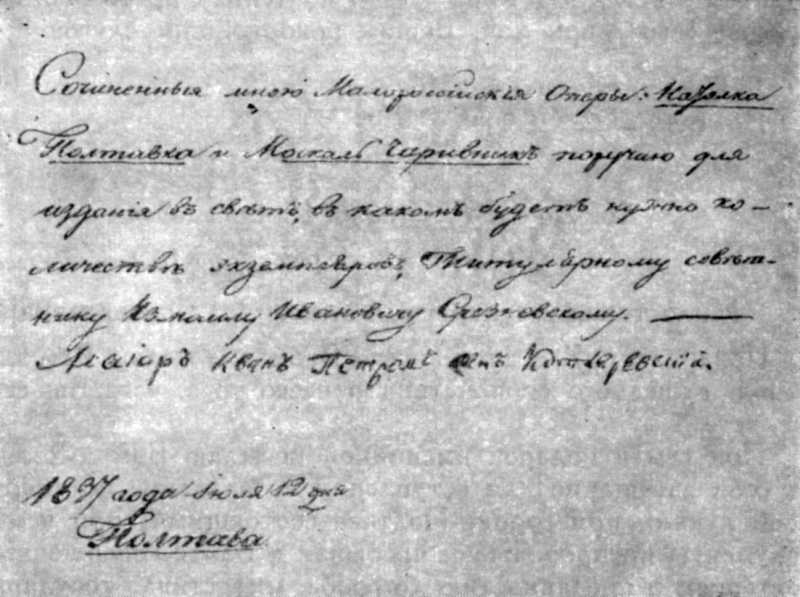 Сочиненныя мною Малороссійскія Оперы: Наталка
Полтавка и Москаль Чаривникъ поручаю для
изданія въ свѣтъ, въ какомъ будетъ нужно ко-
личествѣ экземпляровъ, Титулярному совѣт-
нику Измаилу Ивановичу Срезневскому. —
Маіоръ Иванъ Петровъ сынъ Котляревскій.
1837 года Іюля 12 дня
Полтава